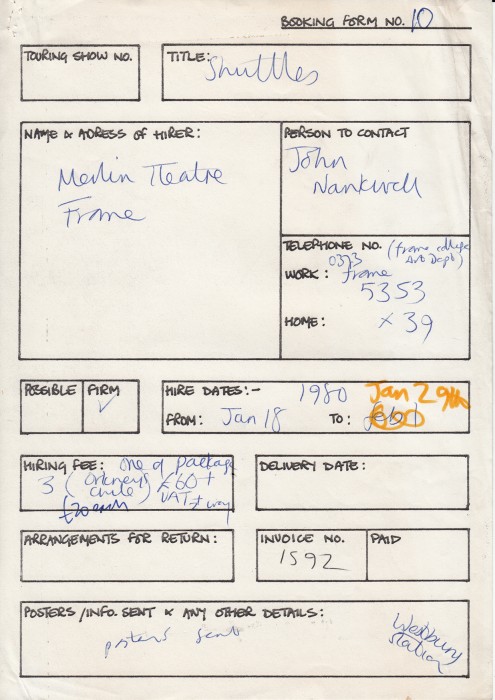 BOOKING FORM NO. 10
TOURING SHOW NO.
TITLE: Shuttles
NAME & ADRESS OF HIRER:
Merlin Theatre
Frome
PERSON TO CONTACT
John
Nankivell
TELEPHONE NO. (frome college
Art Dept)
0373
WORK: frome
5353
HOME: x 39
POSSIBLE FIRM ✓
HIRE DATES:- 1980 Jan 29th
FROM: Jan 18 TO: feb 1
HIRING FEE: one of package
3 (Orkneys £60 +
Chile) VAT +
£20 each
DELIVERY DATE:
ARRANGEMENTS FOR RETURN:
INVOICE NO. PAID
1592
POSTERS/INFO. SENT & ANY OTHER DETAILS:
posters sent
Westbury
station